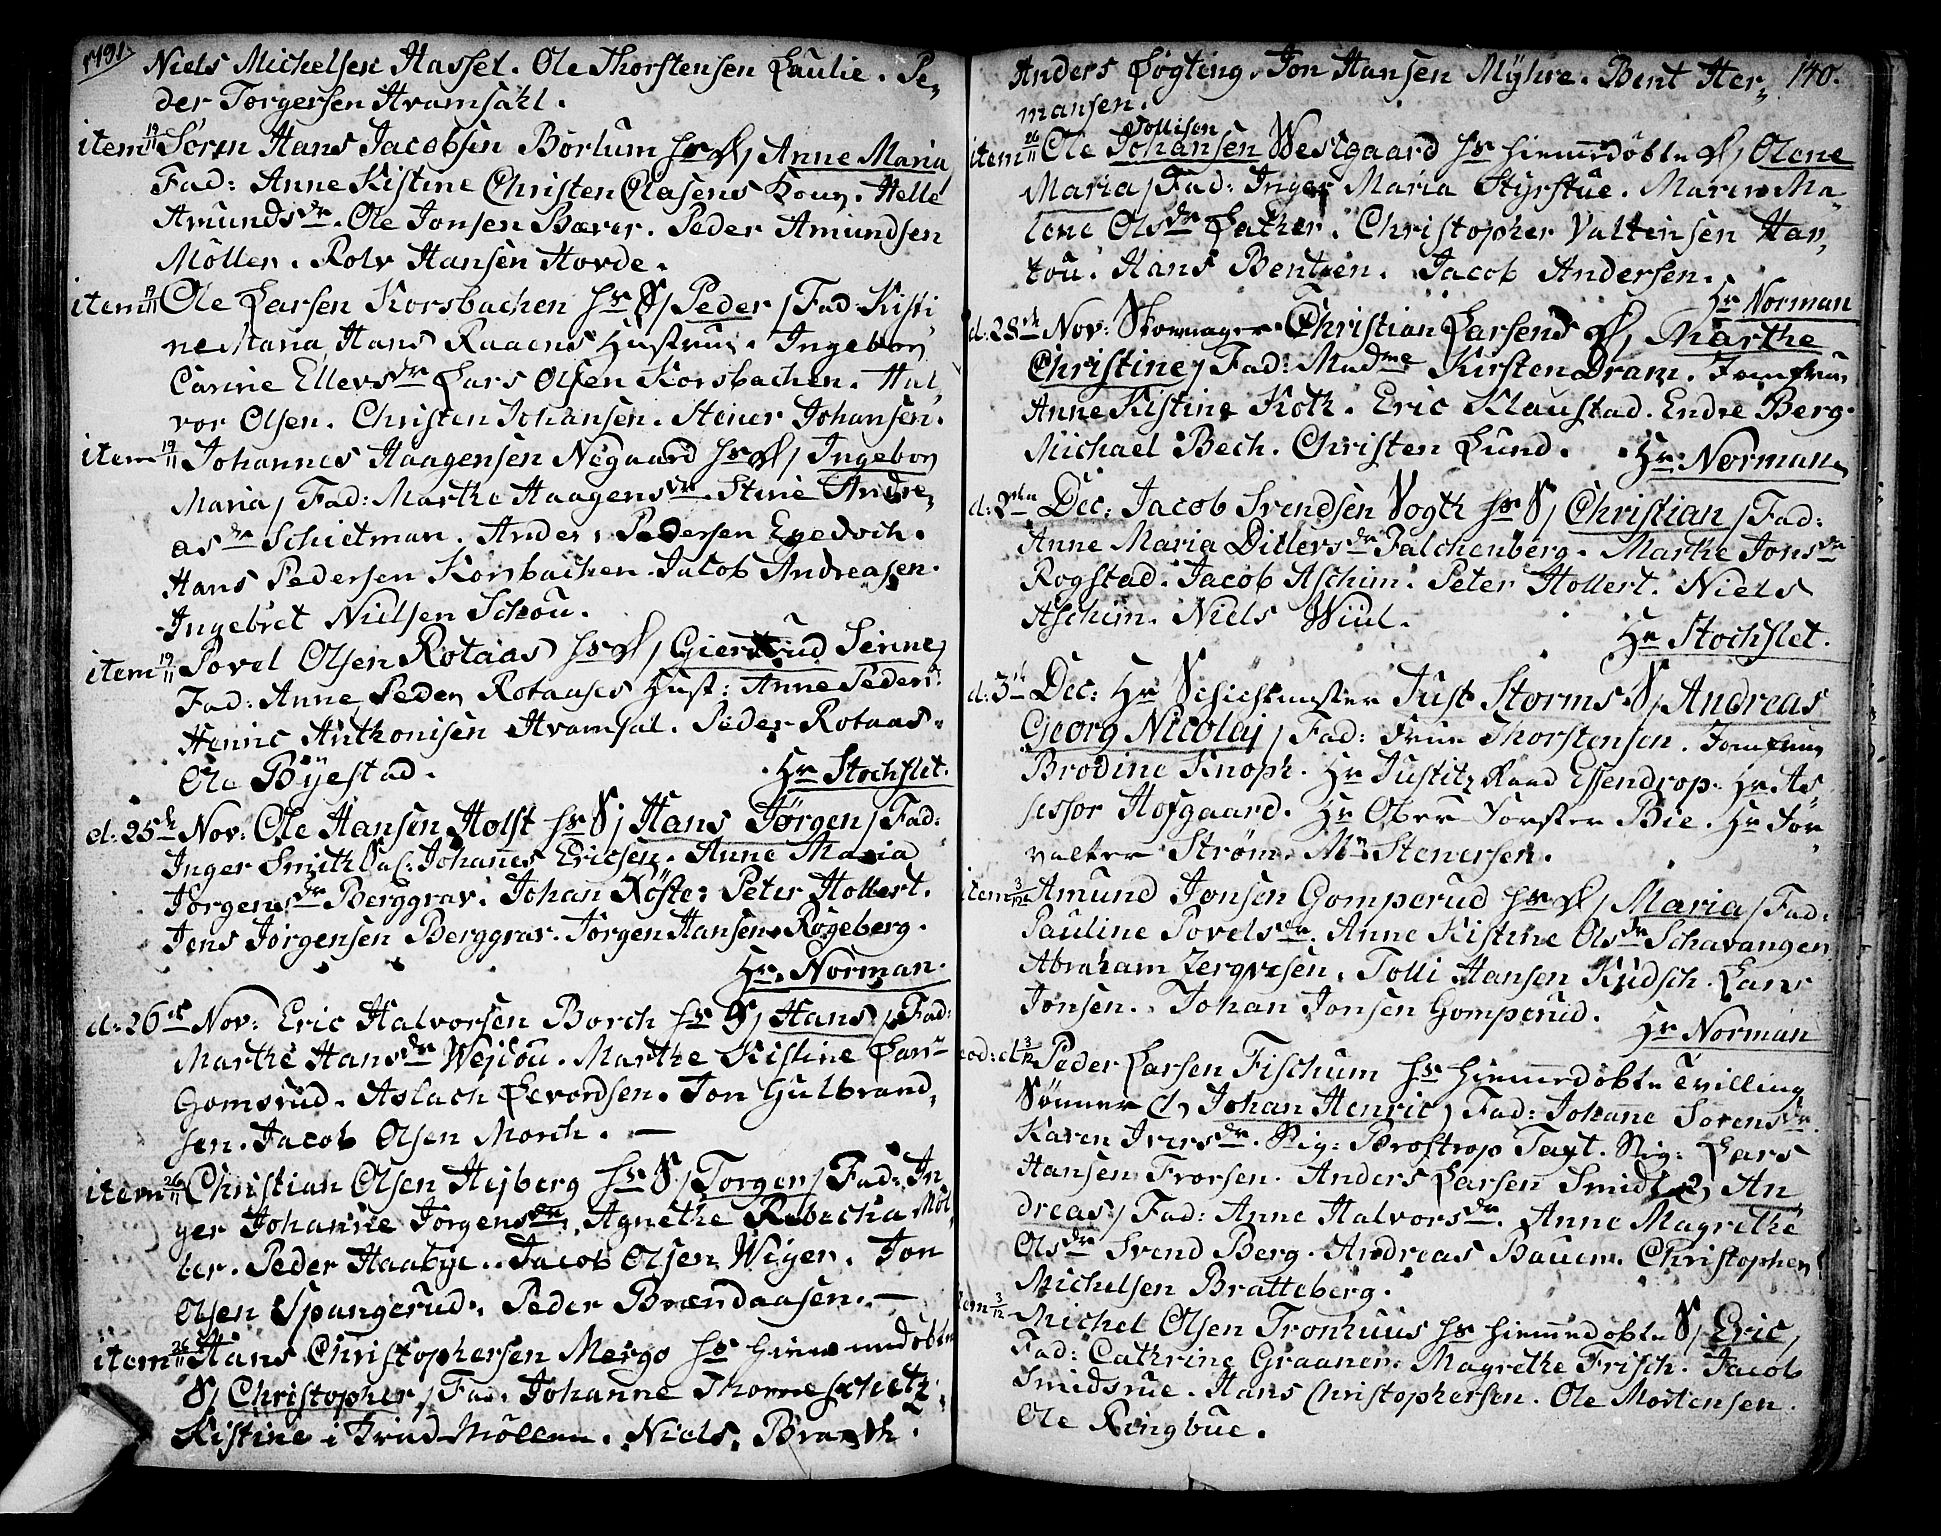 1791.
Niels Michelsen Hassel. Ole Thorstensen Laulie. Pe-
der Torgersen Hvamsahl.
item 19/11 Sören Hans Jacobsen Borlum hs D, Anne Maria
Fad: Anne Kistine Christen Clasens Kone. Helle
Amundsdr. Ole Jonsen Bærer. Peder Amundsen
Möller. Rolv Hansen Hovde.
item 19/11 Ole Larsen Korsbachen hs S, Peder, Fad: Kisti
ne Maria Hans Raaens Hustrue. Ingebor
Carine Ellersdr Lars Olsen Korsbachen. Hal,
vor Olsen. Christen Johansen. Stener Johansen.
item 19/11 Johannes Haagensen Nögaard hs D, Ingebor
Maria, Fad: Marthe Haagensdr. Stine Andre,
asdr Schietman. Anders Pedersen Egedsch.
Hans Pedersen Korsbachen. Jacob Andreasen.
Ingebret Nielsen Schöu.
item 19/11 Povel Olsen Rotaas hs D, Giertrud Sennes
Fad: Anne Peder Rotaases Hust: Anne Peders
Henric Anthonisen Hvamsal. Peder Rotaas.
Ole Böyestad. Hr Stochflet.
d: 25de Nov: Ole Hansen Holst hs S, Hans Jörgen, Fad:
Inger Smith Sal: Johanes Ericsen. Anne Maria
Jörgensdr Berggrav. Johan Köster Peter Hollert.
Jens Jörgensen Berggrav. Jörgen Hansen Rögeberg.
Hr. Norman.
d: 26de Nov: Eric Halvorsen Borch hs S, Hans, Fad:
Marthe Hansdr Wejlöu. Marthe Kistine Lars
Gomsrud. Aslach Levordsen. Jon Gulbrand,
sen. Jacob Olsen Morch. —
item 26/11 Christian Olsen Hejberg hs S, Torger, Fad: In,
ger Johanne Jörgensdr. Agnethe Rebecha Möl,
ler. Peder Haabye. Jacob Olsen Wiger. Jon
Olsen Spangerud. Peder Brændaasen. —
item 26/11 Hans Christophersen Mergo hs hiemmedöbte
S, Christopher, Fad: Johanne Thorneschetz.
Kistine i Trud Möllen. Niels. Branth.
Anders Fögting. Jon Hansen Myhre. Bent Her, 140.
mansen.
Tollisen
item 26/11 Ole Johansen Westgaard hs hiemmedöbte D, Olene
Maria, Fad: Inger Maria Styrstue. Maren Ma,
lene Olsdr Lather. Christopher Valtinsen Har,
tou. Hans Bentzen. Jacob Andersen.
Hr Norman
d: 28de Nov: Skomager Christian Larsens D, Marthe
Christine, Fad: Madme Kirsten Dram. Jomfrue
Anne Kistine Koth. Eric Klaustad. Endre Berg.
Michael Bech. Christen Lund. Hr. Norman.
d: 2den Dec: Jacob Svendsen Vogth hs S, Christian, Fad:
Anne Maria Ditlersdr Falchenberg. Marthe Jonsdr
Rogstad. Jacob Aschim. Peter Hollert. Niels
Aschim. Niels Wiul.
Hr Stochflet.
d: 3de Dec: Hr Schichtmester Just Storms S, Andreas
Georg Nicolaj, Fad: Frue Thorstensen. Jomfrue
Brodine Knoph. Hr Justitz Raad Essendrop. Hr As,
sessor Hofgaard. Hr Ober Forster Bie. Hr For,
valter Ström. Mr Stenersen.
item 3/12 Amund Jonsen Gomperud hs D, Maria, Fad:
Pauline Povelsdr. Anne Kistine Olsdr Schavangen
Abraham Jergvesen. Tolli Hansen Kudsch. Lars
Jonsen. Johan Jonsen Gomperud.
Hr Norman
eod: d 3/12 Peder Larsen Fischum hs hiemmedöbte Tvilling
Sönner 1, Johan Henric, Fad: Johane Sorensdr.
Karen Iversdr. Stig: Brostrop Tayt. Stig: Lars
Hansen Frorsen. Anders Larsen Smidt 2, An
dreas, Fad: Anne Halvorsdr. Anne Magrethe
Olsdr Svend Berg. Andreas Bauer. Christopher
Michelsen Bratteberg.
item 3/12 Michel Olsen Tronhuus hs hiemmedöbte S, Eric,
Fad: Cathrine Graaner. Magrethe Frisch. Jacob
Smidsrue. Hans Christophersen. Ole Mortensen.
Ole Ringbue.